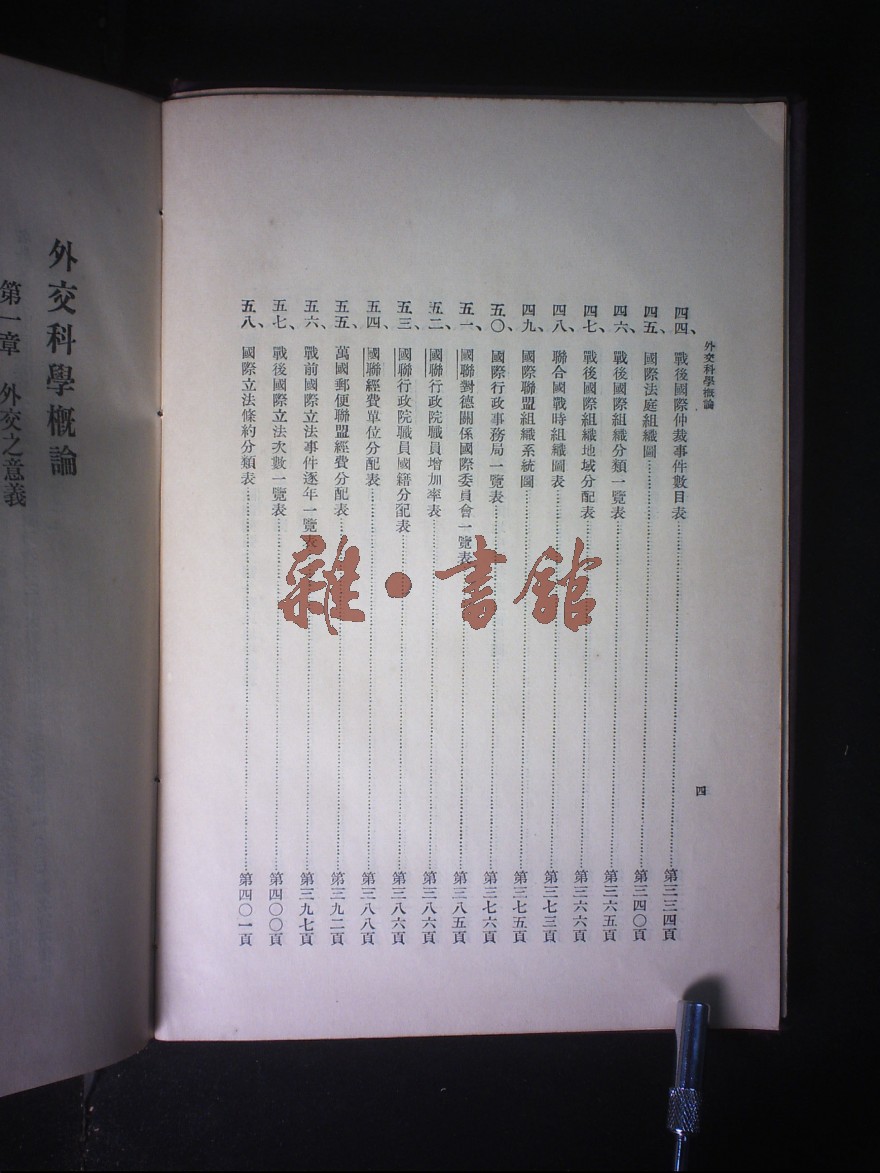 外交科學概論
四
四四、戰後國際仲裁事件數目表……第三三四頁
四五、國際法庭組織圖……第三四〇頁
四六、戰後國際組織分類一覽表……第三六五頁
四七、戰後國際組織地域分配表……第三六六頁
四八、聯合國戰時組織圖表……第三七三頁
四九、國際聯盟組織系統圖……第三七五頁
五〇、國際行政事務局一覽表……第三七六頁
五一、國聯對德關係國際委員會一覽表……第三八五頁
五二、國聯行政院職員增加率表……第三八六頁
五三、國聯行政院職員國籍分配表……第三八六頁
五四、國聯經費單位分配表……第三八八頁
五五、萬國郵便聯盟經費分配表……第三九二頁
五六、戰前國際立法事件逐年一覽表……第三九七頁
五七、戰後國際立法次數一覽表……第四〇〇頁
五八、國際立法條約分類表……第四〇一頁
外交科學概論
第一章 外交之意義
雜·書館